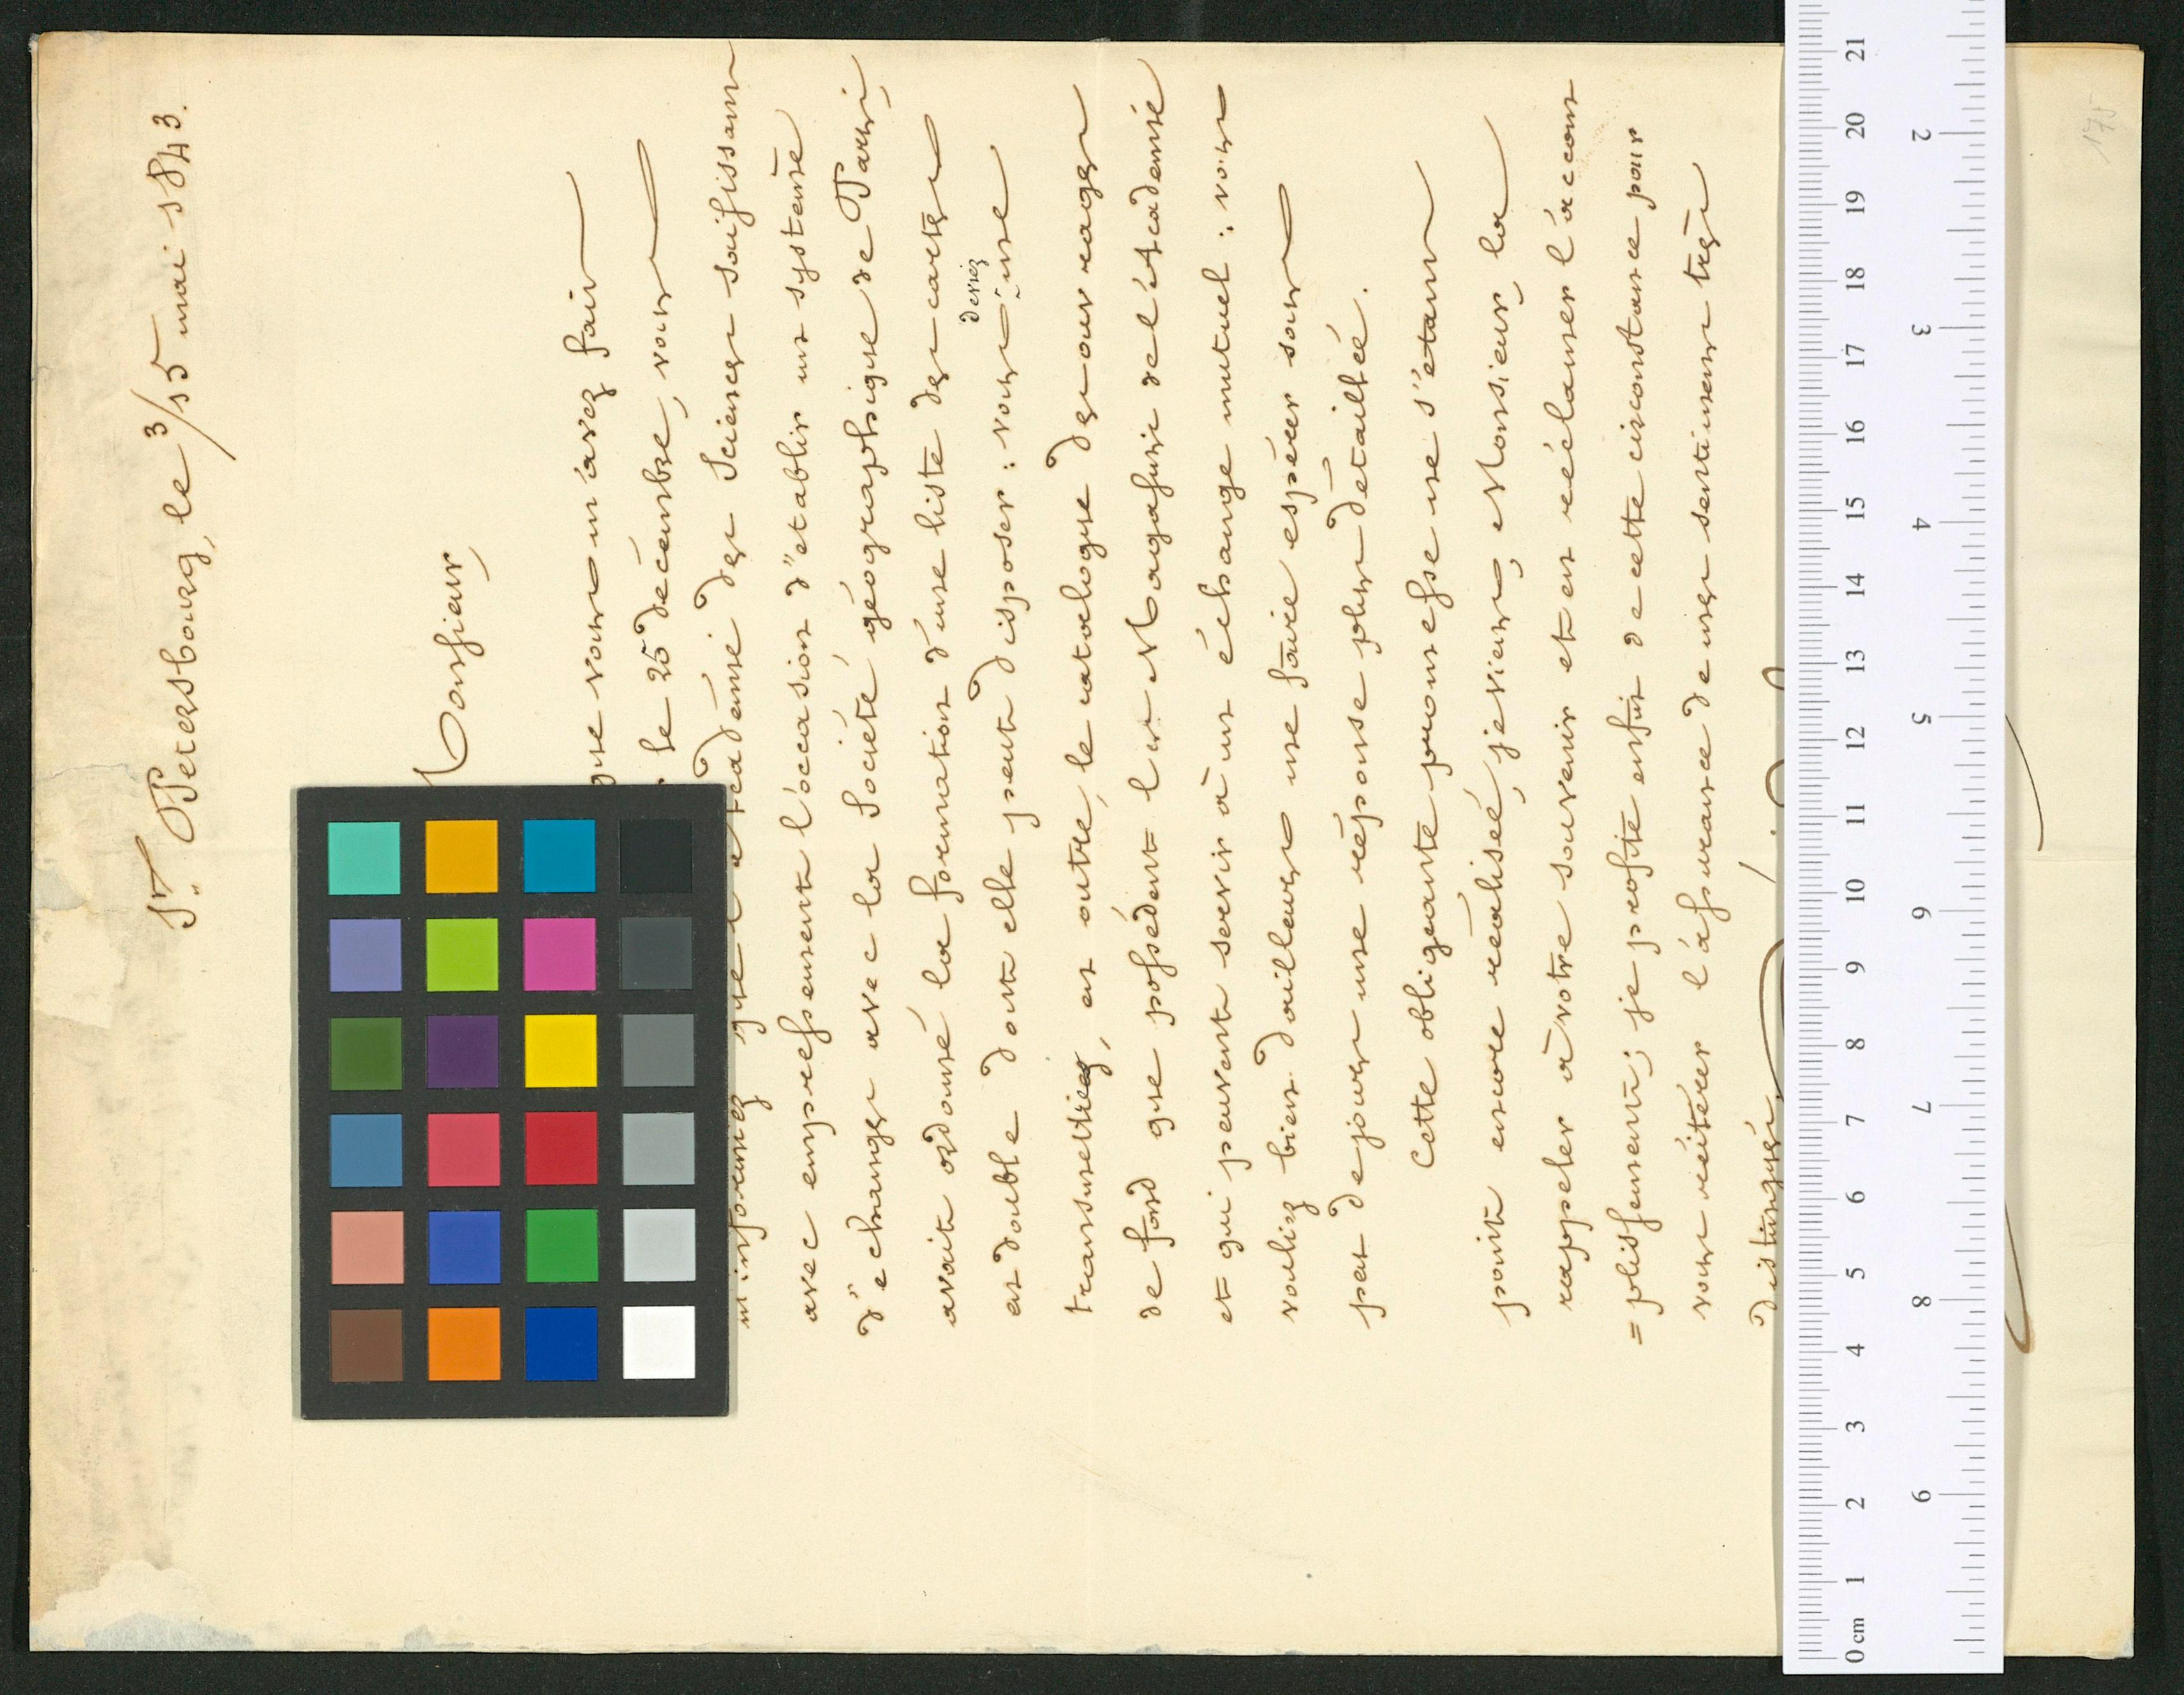 St. Petersbourg, le 3/15 mai 1843.
Monsieur,
que vous m'avez fait
le 25 décembre, vous
m'informiez que l'Académie des Sciences saisissant
avec empressement l'occasion d'etablir un systeme
d'echanges avec la Société géographique de Paris,
avait ordonné la formation d'une liste des cartes
en double dont elle peut disposer: vous deviez me
transmettre, en outre, le catalogue des ouvrages
de fond que possédent les Magasins de l'Academie
et qui peuvent servir à un échange mutuel: vous
vouliez bien d'ailleurs me faire espérer sous
peu de jours une réponse plus détaillée.
Cette obligeante promesse ne s'etant
point encore réalisée, je viens, Monsieur, la
rappeler à votre souvenir et en réclamer l'accom
=plissement; je profite enfin de cette circonstance pour
vous réitérer l'assurance de mes sentiments très
distingués
175
0 cm 1 2 3 4 5 6 7 8 9 10 11 12 13 14 15 16 17 18 19 20 21
2 3 4 5 6 7 8 9